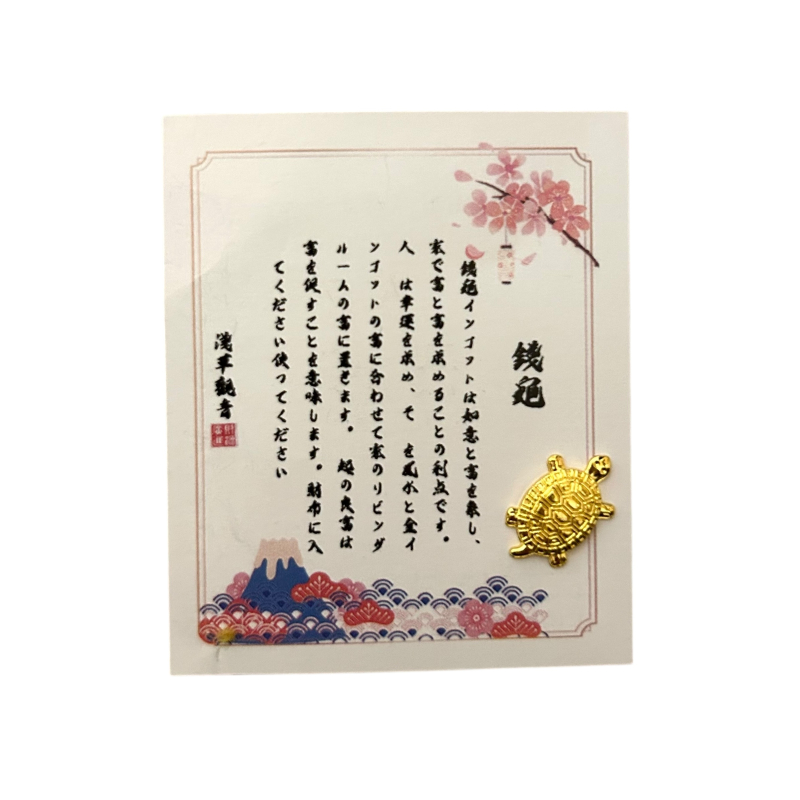 錢龜
錢龜インゴットは如意と富を象し、
家で富と富を求めることの利点です。
人 は幸運を求め、そ を風水と金イ
ンゴットの富に合わせて家のリビング
ルームの富に置きます。 起の良富は
富を促すことを意味します。財布に入
てください使ってください
淺草觀音